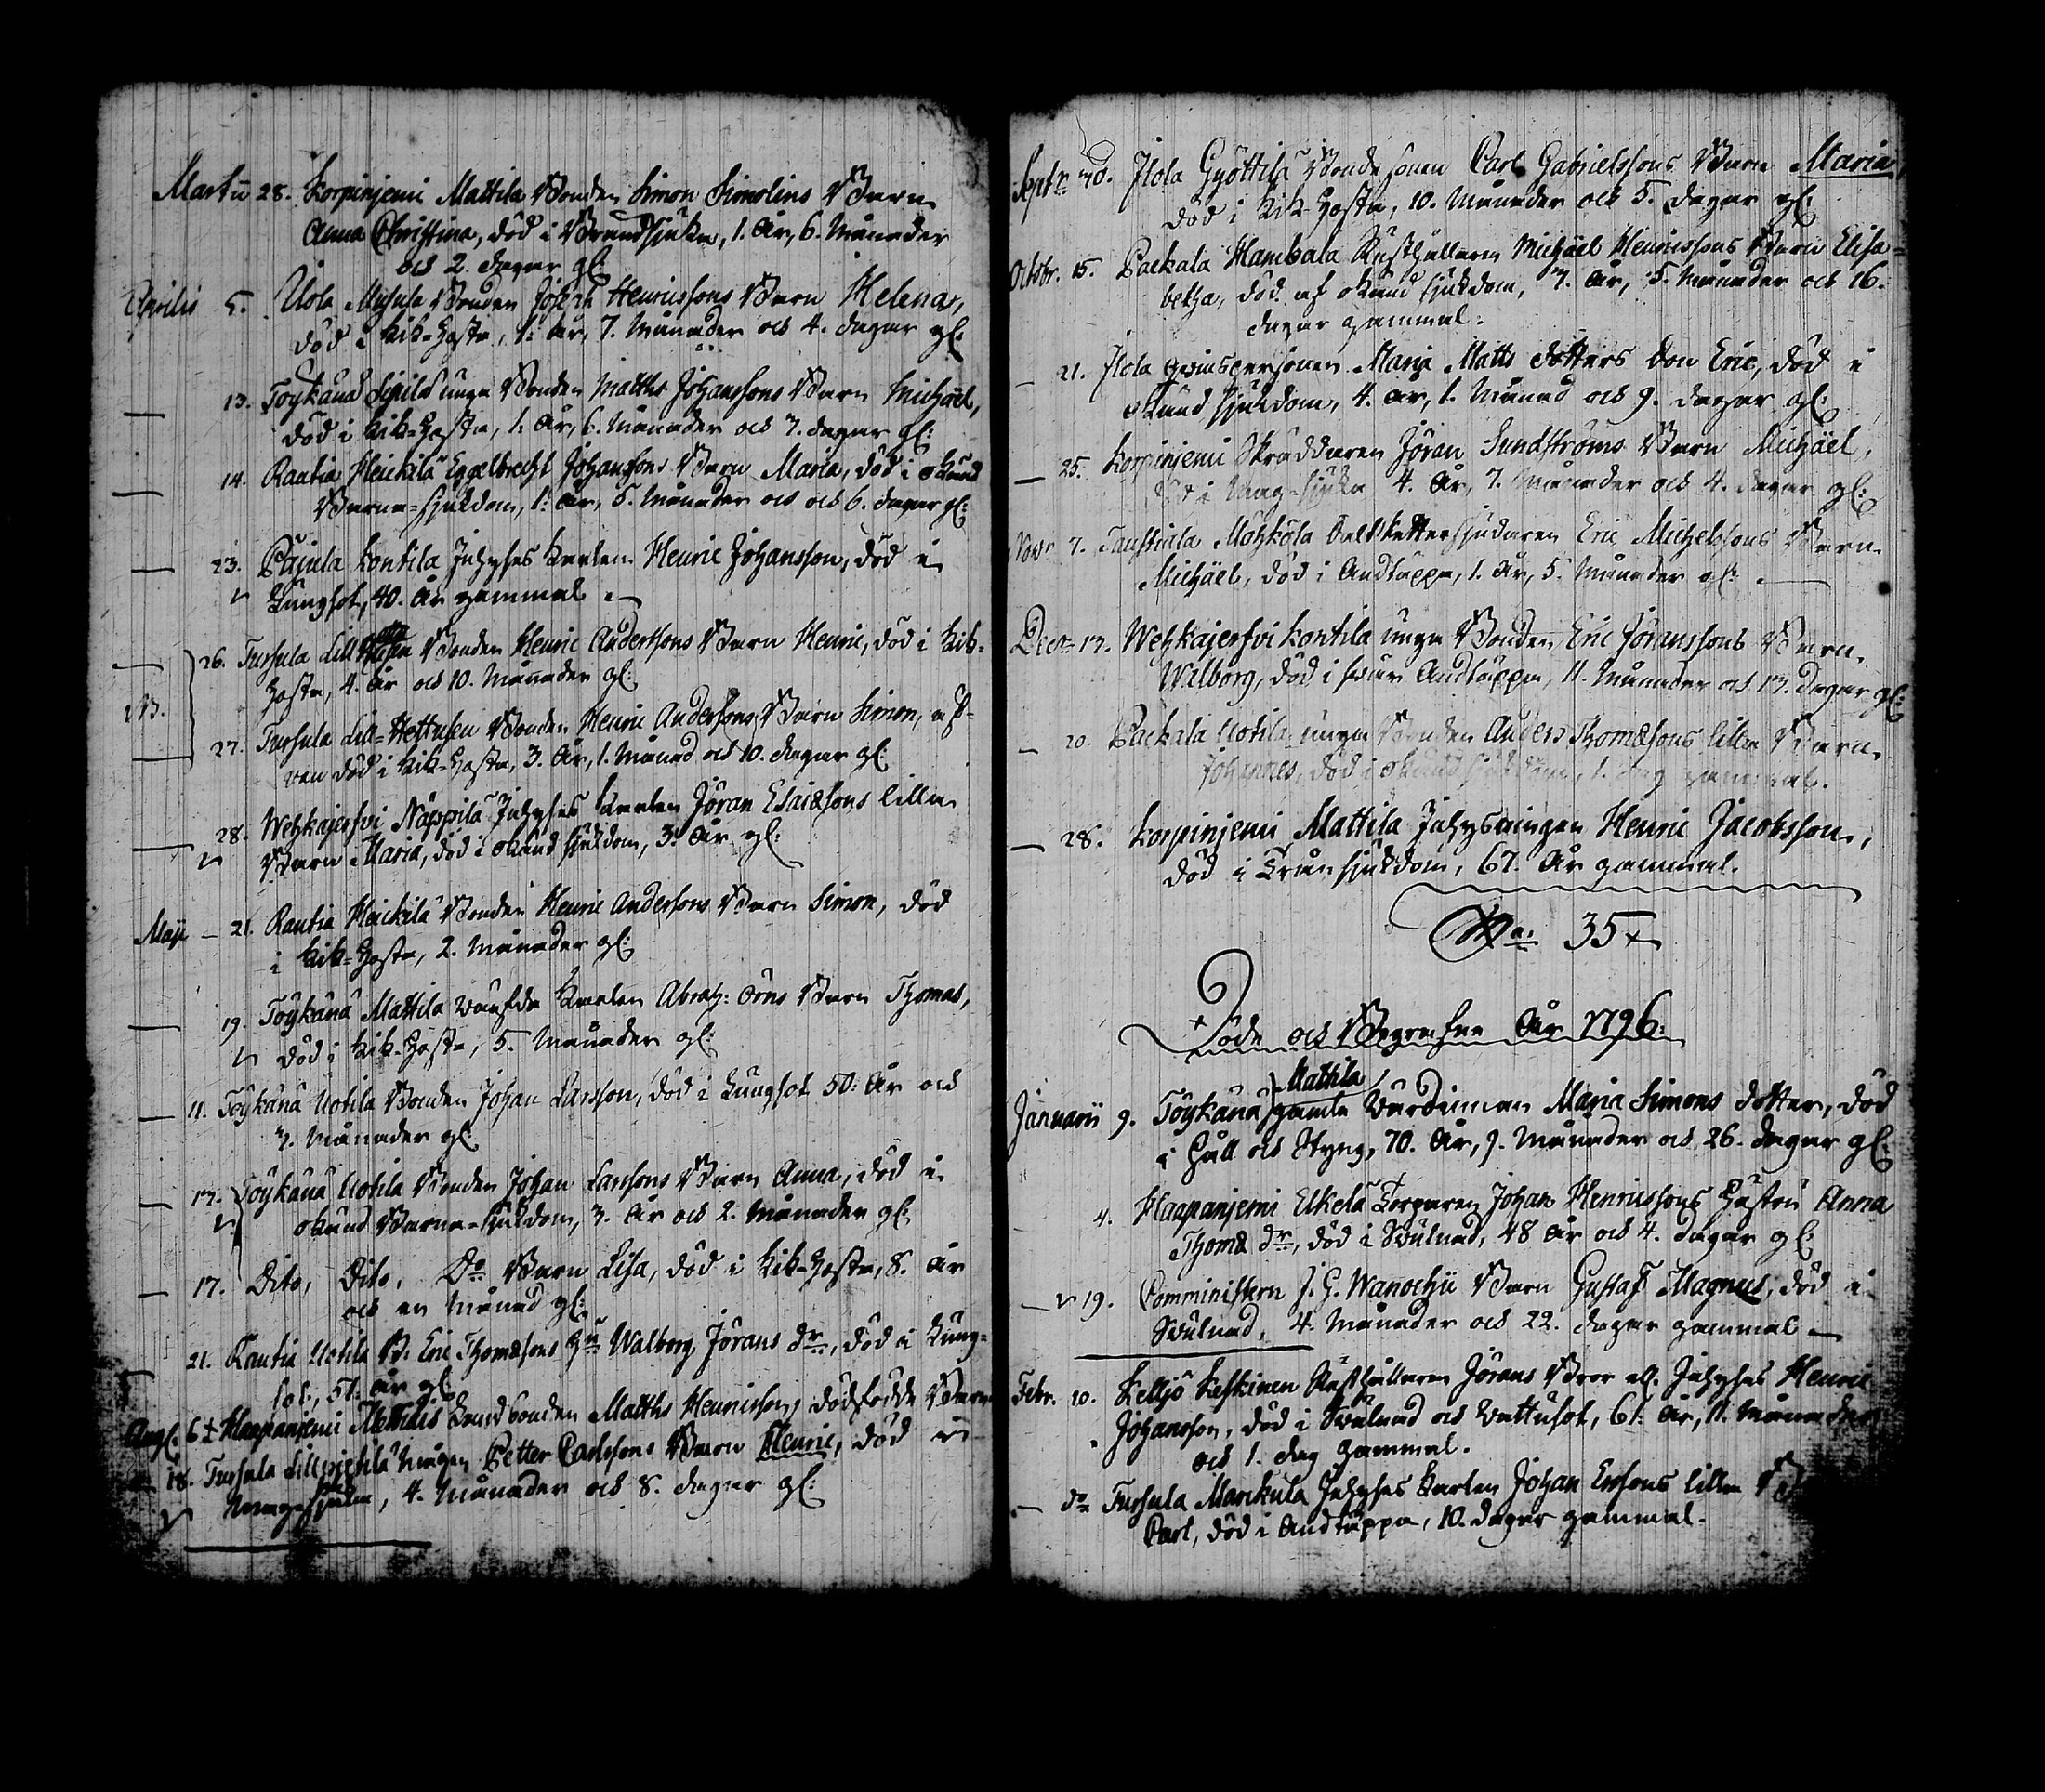 Martii 28. Korpinjemi Mattila Bonden Simon Simolins Barn
Anna Christina, död i Brandsjuka, 1. År, 6. Månader
och 2. dagar gl:
Aprilis 5. Ilola Bonden Joseph Henricssons Barn Helena,
död i Kik-Hosta, 1: År, 7. Månader och 4. dagar gl:
— 13. Töykänä Sipilä unga Bonden Matths Johanssons Barn Michäel,
död i Kik-Hosta, 1. År, 6. Månader och 7. dagar gl:
— 14. Rautia Heickilä Engelbrecht Johanssons Barn Maria, död i okänd
Barna-sjukdom, 1: År, 5. Månader och och 6. dagar gl:
— 23. Pajula Kontila Inhyses Karlen Henric Johansson, död i
Lungsot, 40. År gammal.
— 26. Tursula Lill Bonden Henric Anderssons Barn Henric, död i Kik-
Hosta, 4. År och 10. Månader gl:
— 27. Tursula Lill-Hettulen Bonden Henric Anderssons Barn Simon, äf-
ven död i Kik-Hosta, 3. År, 1. Månad och 10. dagar gl:
— 28. Wehkajerfvi Näppilä Inhyses Karlen Jöran Esaiæsons lilla
Barn Maria, död i okänd sjukdom, 3. År gl:
Maji — 21. Rautia Heickilä Bonden Henric Andersons Barn Simon, död
i Kik-Hosta, 2. Månader gl:
— 19. Töykänä Mattila Karlen Abrah: Örns Barn Thomas,
död i Kik-Hosta, 5. Månader gl:
— 11. Töykänä Uotila Bonden Johan Larsson, död i Lungsot 50. År och
7. Månader gl:
— 17. Töykänä Uotila Bonden Johan Larssons Barn Anna, död i
okänd Barna-sjukdom, 3. År och 2. Månader gl:
— 17. Dito, Dito, Do Barn Lisa, död i Kik-Hosta, 8. År
och en Månad gl:
— 21. Rautia Uotila B. Eric Thomæsons Hu Walborg Jörans dr, död i Lung-
sot, 51. år gl:
Aug: 6 Haapanjemi Landbonden Matths Henricsson, dödfödde Barn
18. Tursula Petter Carlssons Barn Henric, död i
Magsjuka, 4. Månader och 8. dagar gl:
Septr 30. Ilola Gyöttilä Bondesonen Carl Gabrielssons Barn Maria,
död i Kik-Hosta, 10. Månader och 5. dagar gl:
Octobr. 15. Packala Hambala Rusthållaren Michäel Henricssons Barn Elisa-
betha, död af okänd sjukdom, 7. År, 5. Månader och 16.
dagar gammal.
— 21. Ilola qvinspersonen Maria Matts dotters Son Eric, död i
okänd sjukdom, 4. År, 1. Månad och 9. dagar gl:
— 25. Korpinjemi Skräddaren Jöran Sundströms Barn Michäel,
död i Mag-sjuka 4. År, 7. Månader och 4. dagar gl:
Novr 7. Saustiala Möhkölä Salt Eric Michelssons Barn
Michäel, död i Andtäppa, 1. År, 5. Månader gl:
Decr 17. Wehkajerfvi Kontila unga Bonden Eric Jöranssons Barn
Walborg, död i svår Andtäppa, 11. Månader och 17. dagar gl:
— 20. Packala Uotila unga Bonden Anders Thomæsons lilla Barn
Johannes, död i okänd sjukdom, 1. dag gammal.
— 28. Korpinjemi Mattila Inhysningen Henric Jacobsson,
död i Trånsjukdom, 67. År gammal.
Sa. 35
Döde och Begrafne År 1796.
Mattila
Januarii 9. Töykänä gamla Värdinnan Maria Simons dotter, död
i Håll och Styng, 70. År, 9. Månader och 26. dagar gl:
4. Haapanjemi Eskelä Torparen Johan Henricssons Hustru Anna
Thomæ dr, död i Svulnad, 48 År och 4. dagar gl:
— 19. Comministern J. G. Wanochii Barn Gustaf Magnus, död i
Svulnad, 4. Månader och 22. dagar gammal
Febr. 10. Kelljö Keskinen Rusthållaren Jörans Bror Inhyses Henric
Johansson, död i Svulnad och Vattusot, 61: År, 11. Månader
och 1. dag gammal.
— do Tursula Marckula Inhyses Karlen Johan Ersons lilla
Carl, död i Andtäppa, 10. dagar gammal.